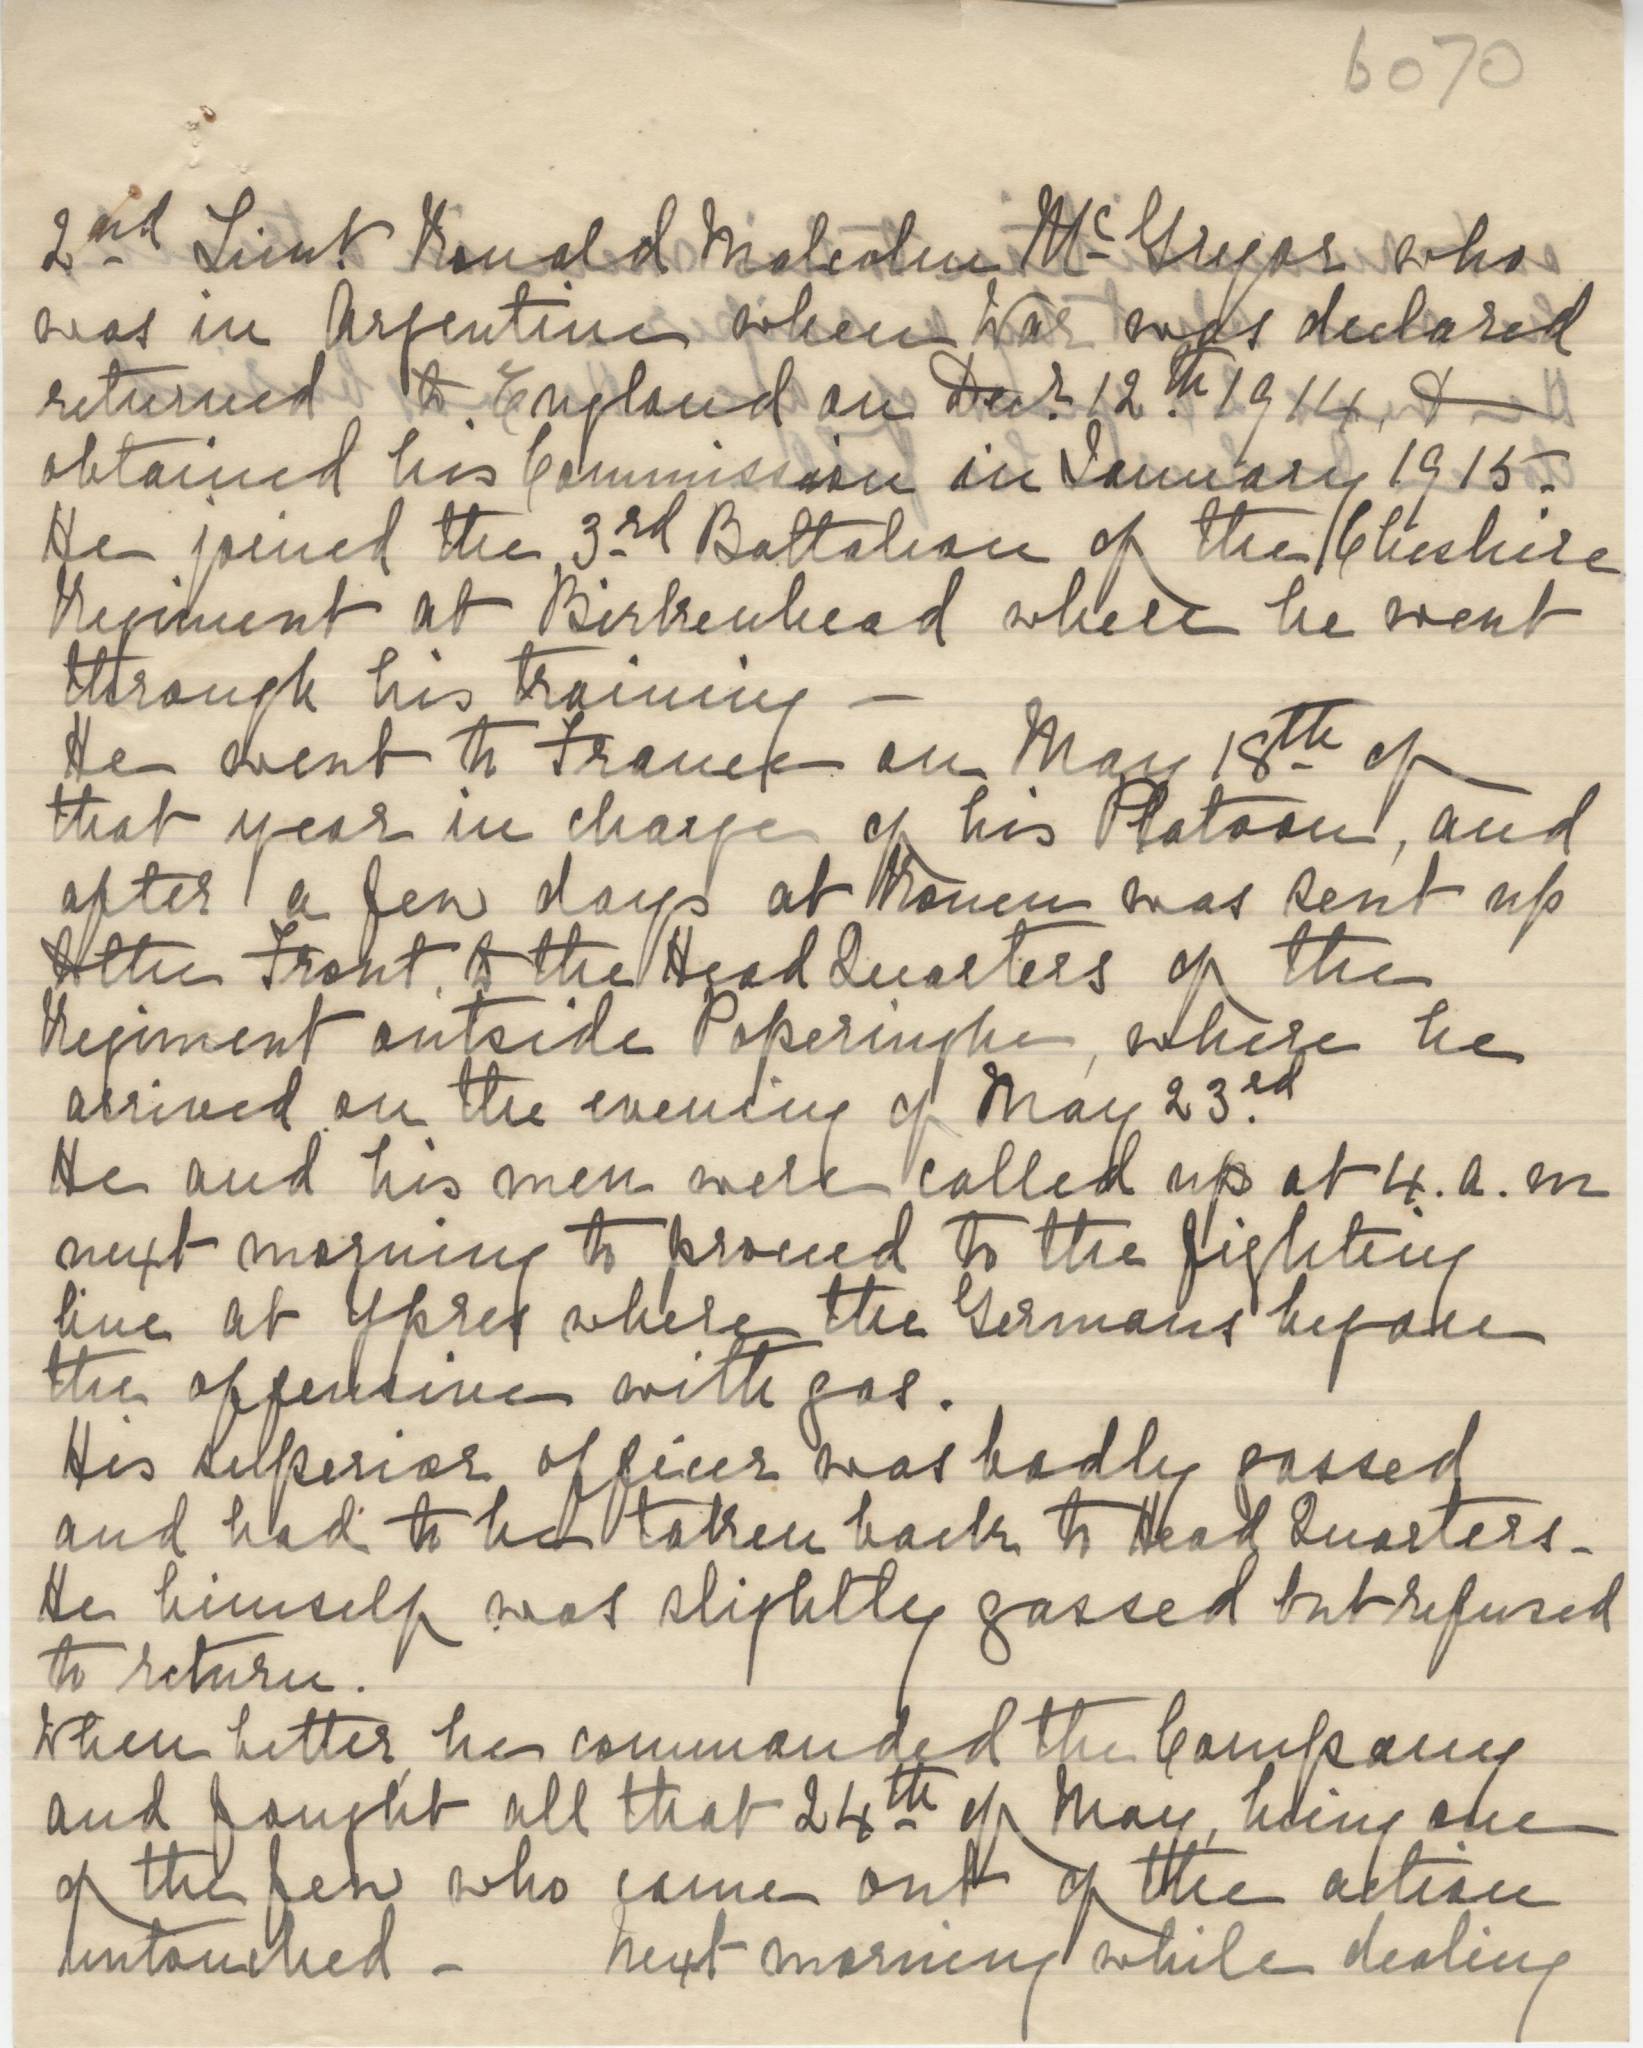 6070
2nd Lieut Ronald Malcolm McGregor who
was in Argentine when War was declared
returned to England on Decr. 12th 1914, &
obtained his Commission in January 1915-
He joined the 3rd Battalion of the Cheshire
Regiment at Birkenhead where he went
through his training –
He went to France on May 18th of
that year in charge of his Platoon, and
after a few days at Rouen was sent up
to the Front, to the Head Quarters of the
Regiment outside Poperinghe, where he
arrived on the evening of May 23rd
He and his men were called up at 4. a. m
next morning to proceed to the fighting
line at Ypres where the Germans began
the offensive with gas.
His superior officer was badly gassed
and had to be taken back to Head Quarters-
He himself was slightly gassed but refused
to return.
When better, he commanded the Company
and fought all that 24th of May, being one
of the few who came out of the action
untouched – Next morning while dealing